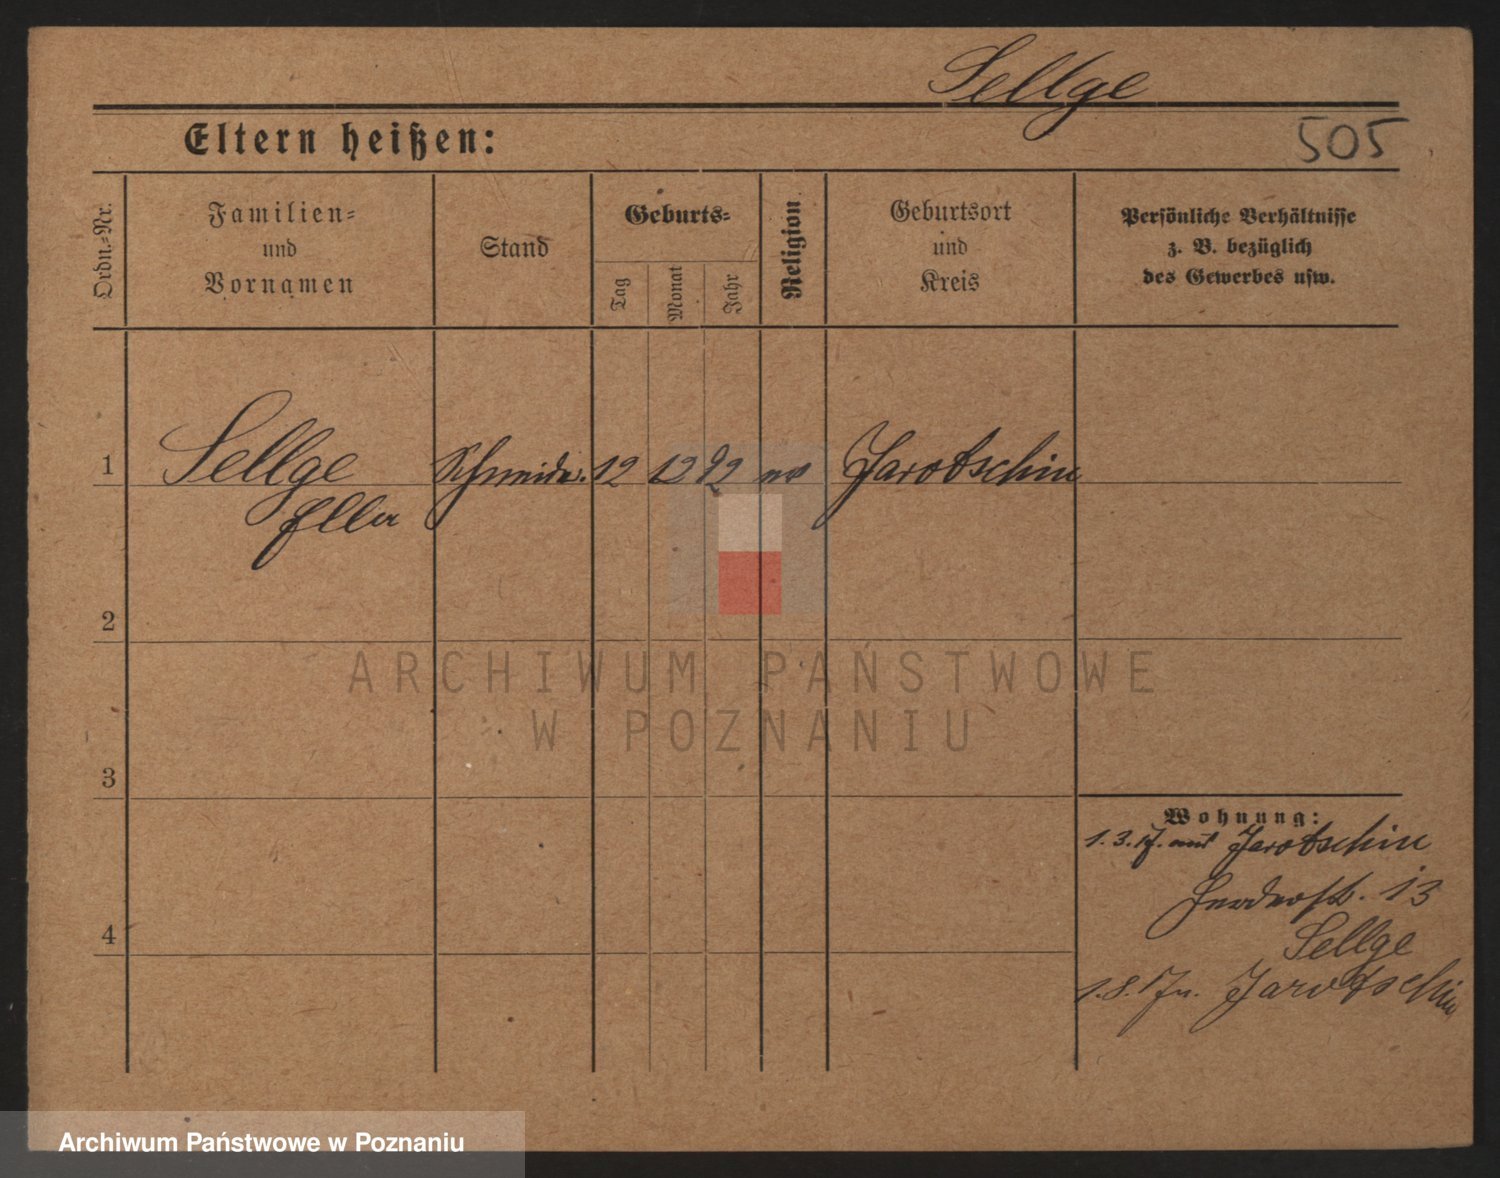 Sellge
Eltern heißen:
505
Ordn.=Nr.
Familien=
und
Vornamen
Stand
Geburts=
Tag
Monat
Jahr
Religion
Geburtsort
und
Kreis
Persönliche Verhältnisse
z. B. bezüglich
des Gewerbes usw.
1
Sellge
Ella
12 12 92
Jarotschin
2
ARCHIWUM PAŃSTWOWE
W POZNANIU
3
Wohnung:
1.3.17. aus Jarotschin
13
Sellge
4
1.8.17 n. Jarotschin
Archiwum Państwowe w Poznaniu